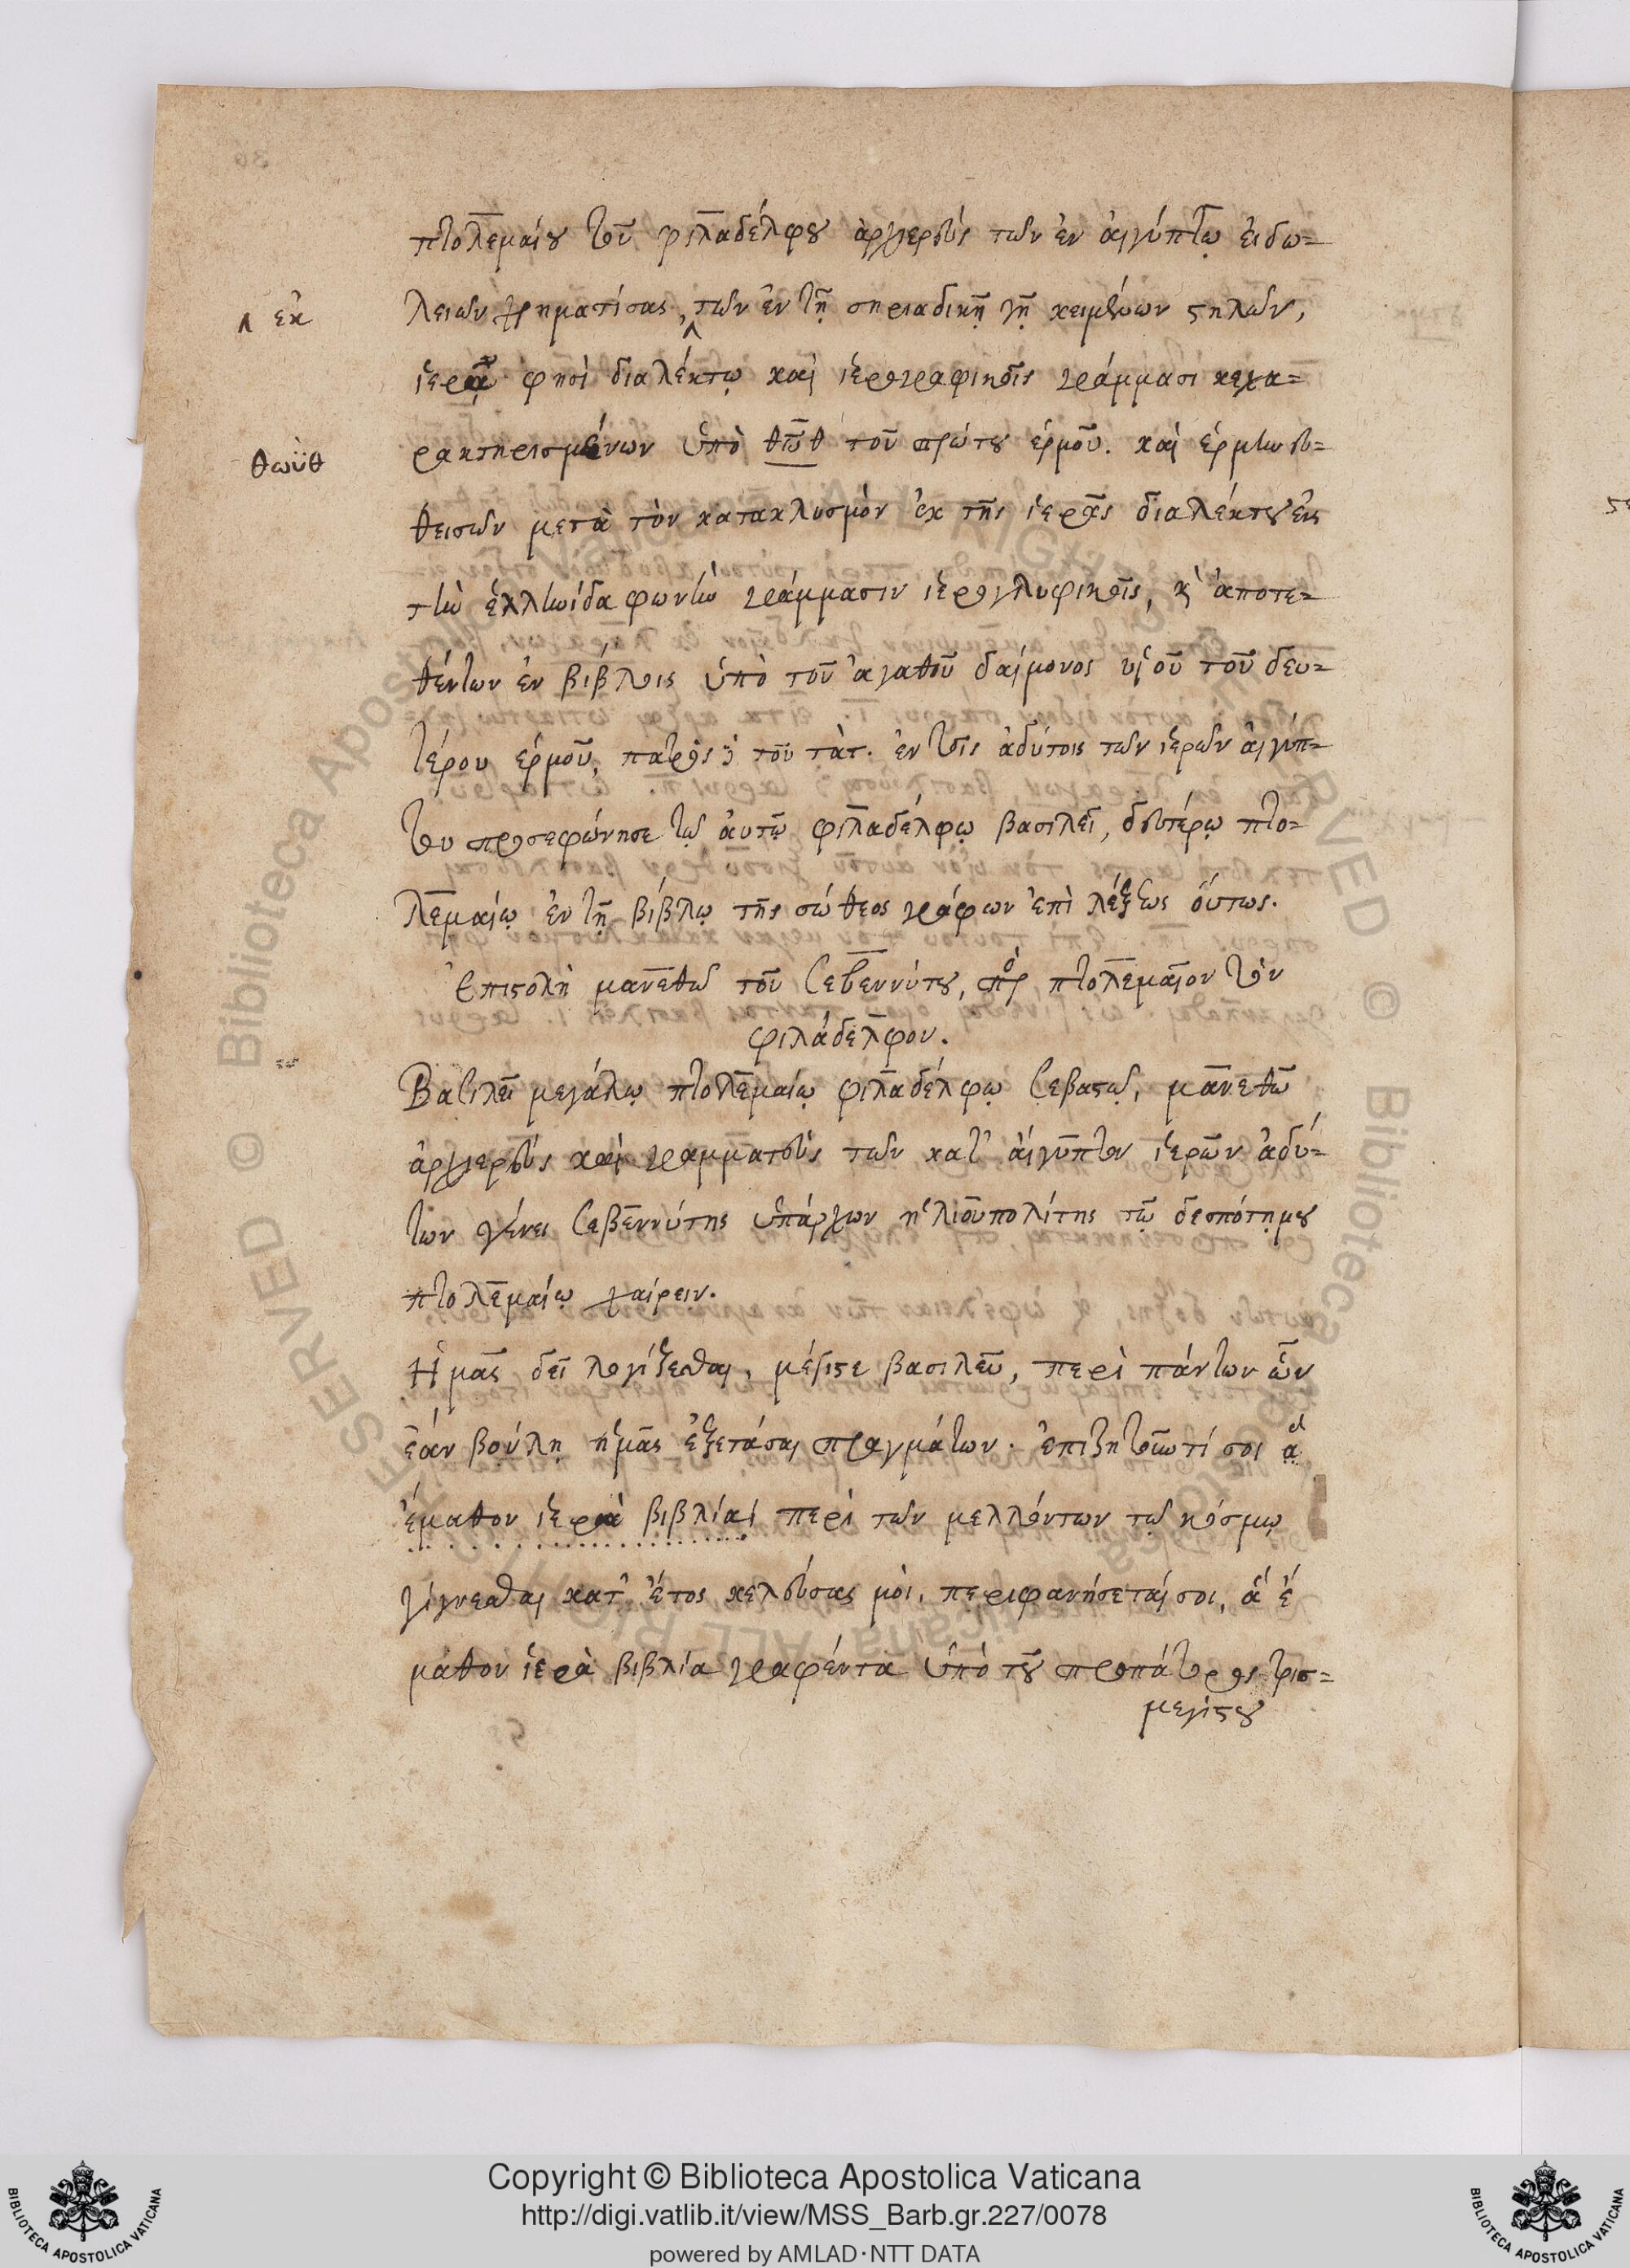 πτολεμαίου τοῦ φιλαδέλφου ἀρχιερεὺς τῶν ἐν αἰγύπτῳ εἰδω=
λείων χρηματίσας, τῶν ἐν τῇ σηριαδικῇ γῇ κειμένων στηλῶν,
ἐκ
ἱερᾷ φησὶ διαλέκτῳ καὶ ἱερογραφικοῖς γράμμασι κεχα=
ρακτηρισμένων ὑπὸ θῶθ τοῦ πρώτου ἑρμοῦ. καὶ ἑρμηνευ=
θωϋθ
θεισῶν μετὰ τὸν κατακλυσμὸν ἐκ τῆς ἱερᾶς διαλέκτου εἰς
τὴν ἑλληνίδα φωνὴν γράμμασιν ἱερογλυφικοῖς, κ̀ ἀποτε=
θέντων ἐν βίβλοις ὑπὸ τοῦ ἀγαθοῦ δαίμονος υἱοῦ τοῦ δευ=
τέρου ἑρμοῦ, πατρὸς δὲ τοῦ τὰτ. ἐν τοῖς ἀδύτοις τῶν ἱερῶν αἰγύπ=
του προσεφώνησε τῷ αὐτῷ φιλαδέλφῳ βασιλεῖ, δευτέρῳ πτο=
λεμαίῳ ἐν τῇ βίβλῳ τῆς σώθεος γράφων ἐπὶ λέξεως οὕτως.
Ἐπιστολὴ μανεθῶ τοῦ σεβεννύτου, πρὸς πτολεμαῖον τὸν
φιλάδελφον.
Βασιλεῖ μεγάλῳ πτολεμαίῳ φιλαδέλφῳ σεβαστῷ, μανεθῶ
ἀρχιερεὺς καὶ γραμματεὺς τῶν κατ' αἴγυπτον ἱερῶν ἀδύ=
των γένει σεβεννύτης ὑπάρχων ἡλιουπολίτης τῷ δεσπότῃ μου
πτολεμαίῳ χαίρειν.
Ἡμᾶς δεῖ λογίζεσθαι, μέγιστε βασιλεῦ, περὶ πάντων ὧν
ἐὰν βούλῃ ἡμᾶς ἐξετάσαι πραγμάτων. ἐπιζητοῦντί σοι ἃ
ἔμαθον ἱερὰ βιβλία περὶ τῶν μελλόντων τῷ κόσμῳ
γίγνεσθαι κατ' ἔτος κελεύσας μοὶ, περιφανήσεταί σοι, ἃ ἔ
μαθον ἱερὰ βιβλία γραφέντα ὑπὸ τοῦ προπάτορος τρισ=
μεγίστου
Copyright © Biblioteca Apostolica Vaticana
http://digi.vatlib.it/view/MSS_Barb.gr.227/0078
powered by AMLAD·NTT DATA